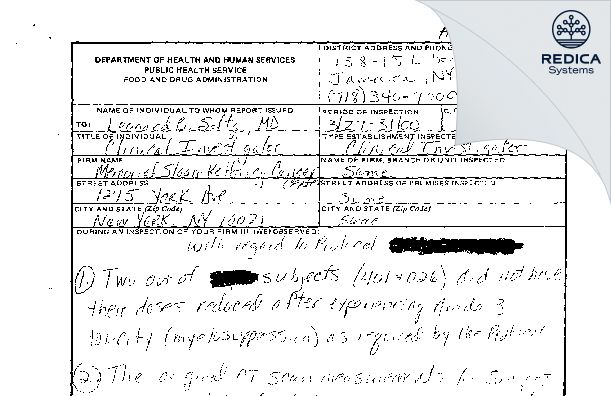 REDICA
Systems
DISTRICT ADDRESS AND PHONE
DEPARTMENT OF HEALTH AND HUMAN SERVICES
PUBLIC HEALTH SERVICE
FOOD AND DRUG ADMINISTRATION
158-15 L
Jamaica, NY
(718) 340-7000
NAME OF INDIVIDUAL TO WHOM REPORT ISSUED
PERIOD OF INSPECTION
TO: Leonard B. Saltz, MD
TITLE OF INDIVIDUAL
TYPE ESTABLISHMENT INSPECTED
Clinical Investigator
Clinical Investigator
FIRM NAME
NAME OF FIRM, BRANCH OR UNIT INSPECTED
Memorial Sloan Kettering Cancer
Same
STREET ADDRESS
STREET ADDRESS OF PREMISES INSPECTION
1275 York Ave
Same
CITY AND STATE (Zip Code)
CITY AND STATE (Zip Code)
New York, NY 10021
Same
DURING AN INSPECTION OF YOUR FIRM (I) (WE) OBSERVED:
with regard to Protocol
① Two out of subjects (401 + 026) did not have
their doses reduced after experiencing Grade 3
toxicity (myelosuppression) as required by the Protocol
② The original CT scan measurements for Subject